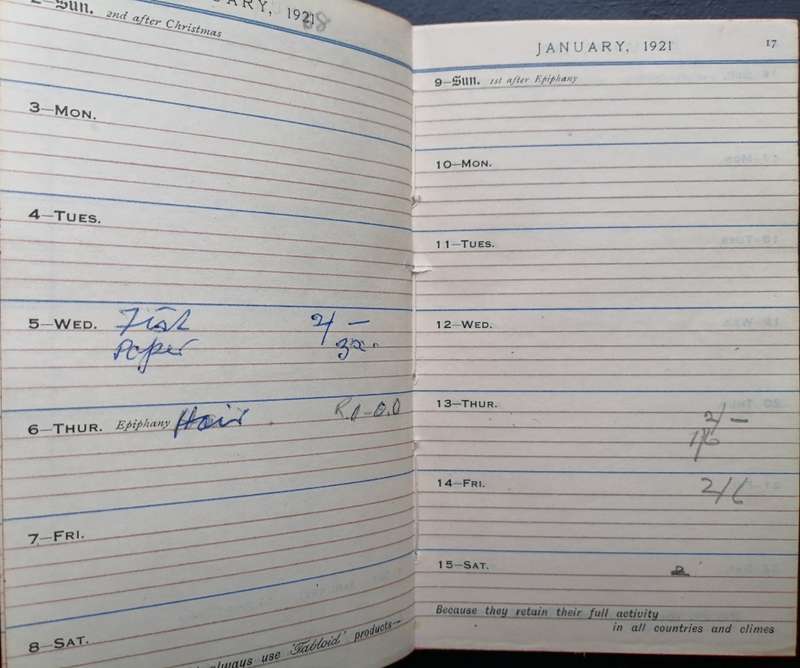 JANUARY, 1921
2—Sun. 2nd after Christmas
3—MON.
4—TUES.
5—WED. Fish 2/-
Paper 3d.
6—THUR. Epiphany Hair
7—FRI.
8—SAT.
always use 'Tabloid' products—
JANUARY, 1921 17
9—Sun. 1st after Epiphany
10—MON.
11—TUES.
12—WED.
13—THUR.
2/-
1/6
14—FRI. 2/6
15—SAT.
Because they retain their full activity
in all countries and climes